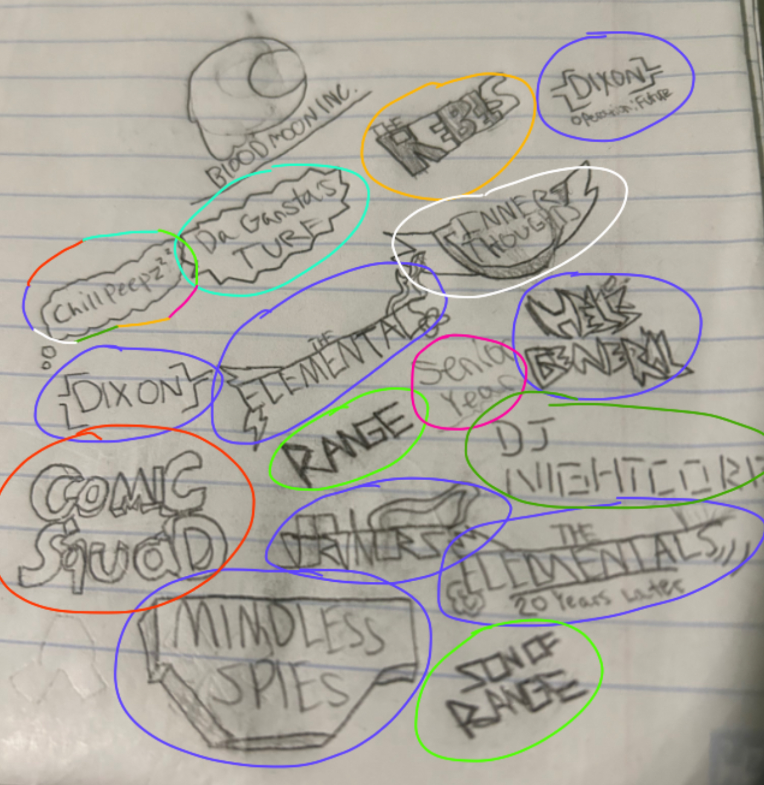 BLOOD MOON INC.
THE
REBELS
{DIXON}
Operation: Future
Da Gansta's
TURF
INNER
THOUGHTS
Chill Peepz zz
THE
ELEMENTALS
HELL'S
GENERAL
{DIXON}
Senior
Year
RANGE
DJ
NIGHTCORE
COMIC
SquaD
THE
ELEMENTALS
20 Years Later
MINDLESS
SPIES
SON OF
RANGE